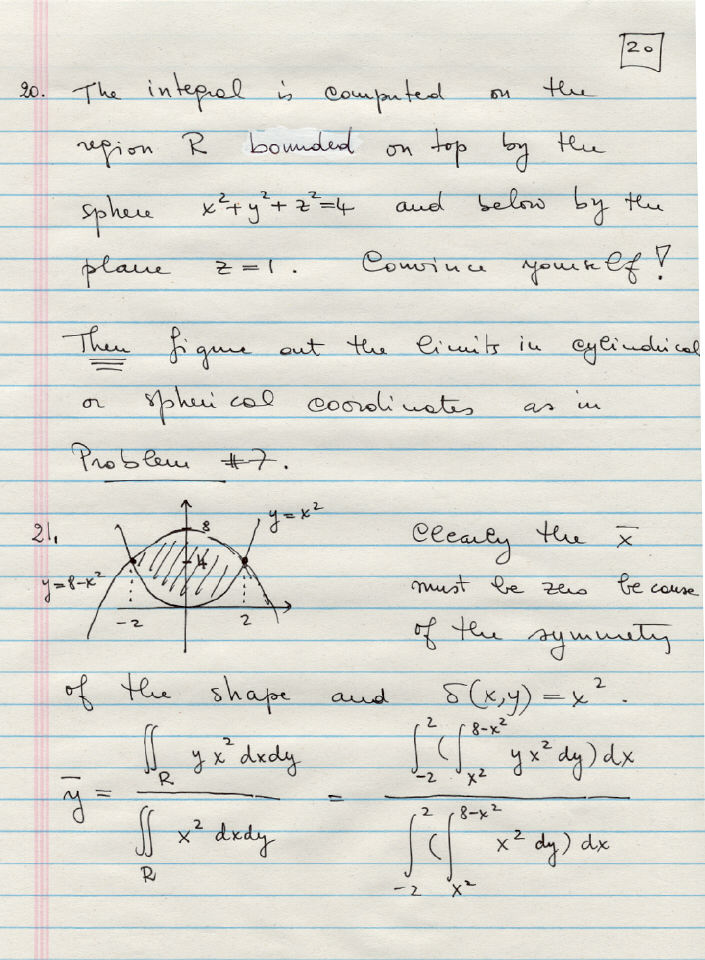 20
20. The integral is computed on the
region R bounded on top by the
sphere x²+y²+z²=4 and below by the
plane z=1. Convince yourself!
Then figure out the limits in cylindrical
or spherical coordinates as in
Problem #7.
21.
y=x²
8
4
y=8-x²
-2 2
Clearly the x̅
must be zero because
of the symmetry
of the shape and δ(x,y) = x².
y̅ = ∬_R y x² dxdy / ∬_R x² dxdy = ∫_{-2}^{2} (∫_{x²}^{8-x²} y x² dy) dx / ∫_{-2}^{2} (∫_{x²}^{8-x²} x² dy) dx